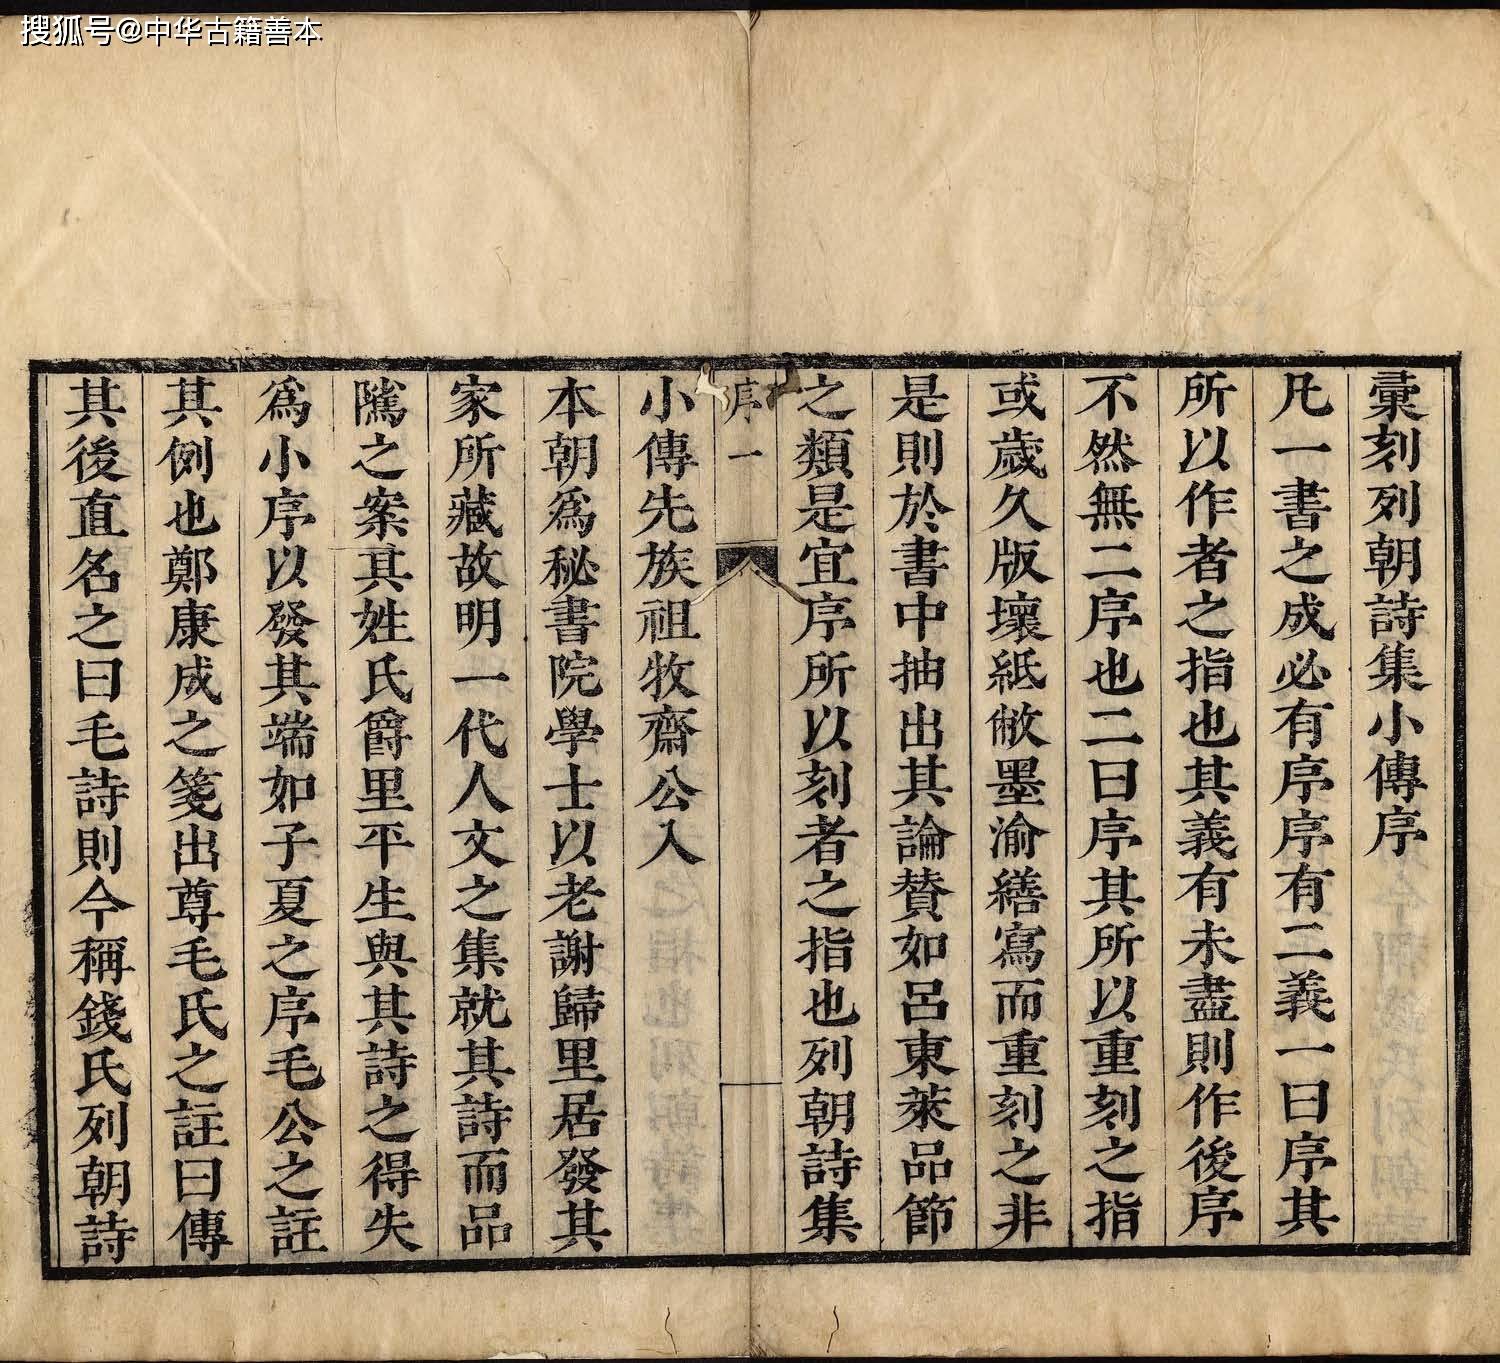 搜狐号@中华古籍善本
彚刻列朝詩集小傳序
凡一書之成必有序序有二義一曰序其
所以作者之指也其義有未盡則作後序
不然無二序也二曰序其所以重刻之指
或歲久版壞紙敝墨渝繕寫而重刻之非
是則於書中抽出其論賛如呂東萊品節
之類是宜序所以刻者之指也列朝詩集
序一
小傳先族祖牧齋公入
本朝爲秘書院學士以老謝歸里居發其
家所藏故明一代人文之集就其詩而品
隲之案其姓氏爵里平生與其詩之得失
爲小序以發其端如子夏之序毛公之註
其例也鄭康成之箋出尊毛氏之註曰傳
其後直名之曰毛詩則今稱錢氏列朝詩